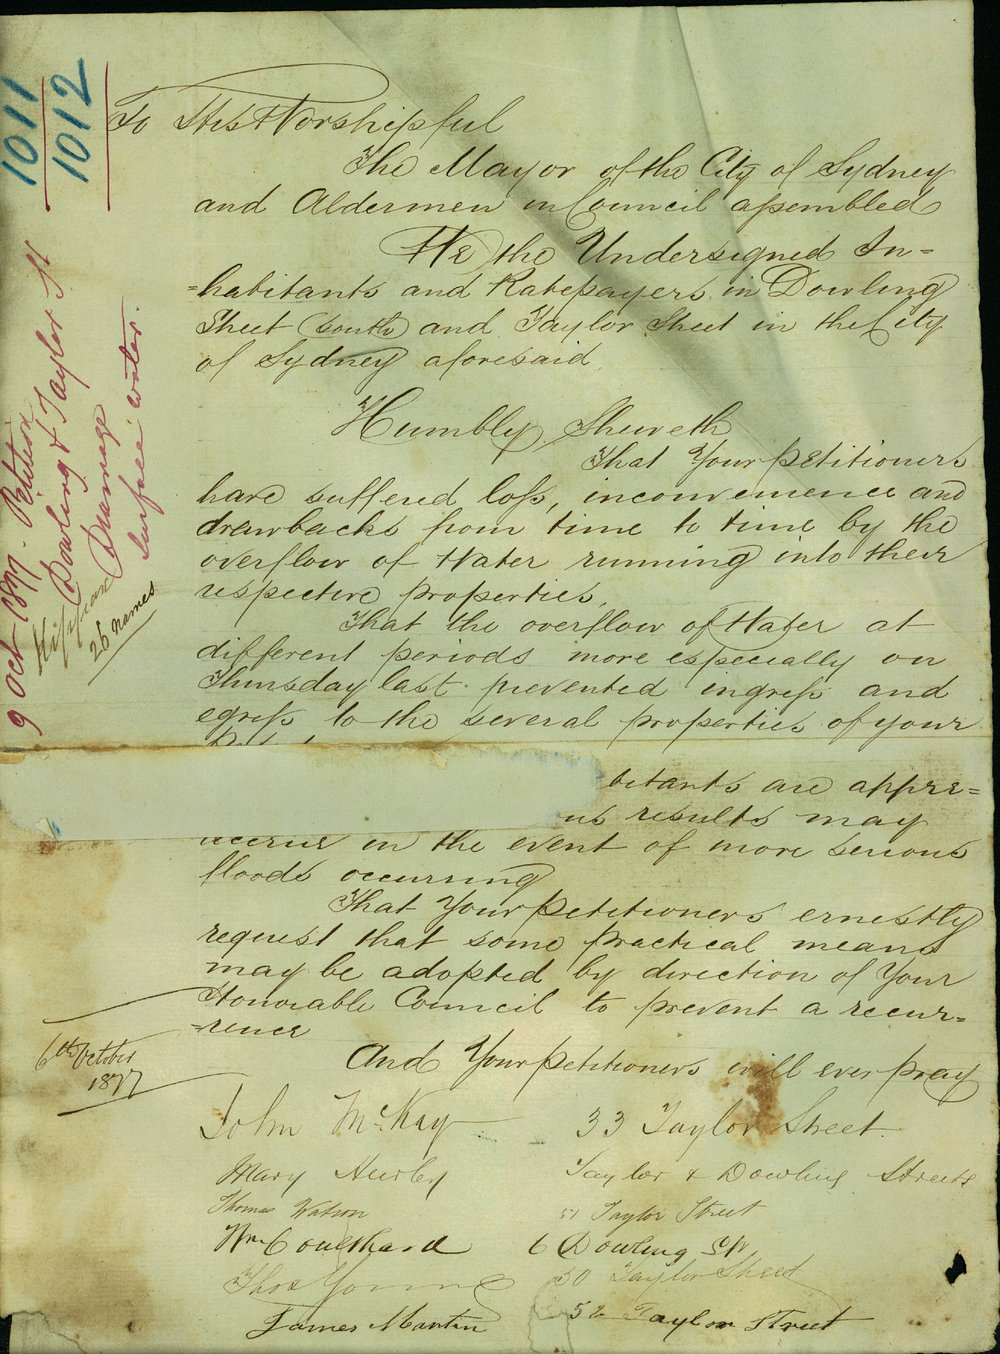 1011
1012
9 Oct 1877. Petition
Dowling & Taylor St
Drainage
Surface water.
26 names
To His Worshipful
The Mayor of the City of Sydney
and Aldermen in Council assembled
We the Undersigned In=
=habitants and Ratepayers in Dowling
Street (South) and Taylor Street in the City
of Sydney aforesaid
Humbly Sheweth
That Your petitioners
have suffered loss, inconvenience and
drawbacks from time to time by the
overflow of Water running into their
respective properties,
That the overflow of Water at
different periods more especially on
Thursday last prevented ingress and
egress to the several properties of your
bitants are appre=
us results may
accrue in the event of more serious
floods occurring
That Your petitioners ernestly
request that some practical means
may be adopted by direction of Your
Honorable Council to prevent a recur=
=rence
And Your petitioners will ever pray
6th October
1877
John McKay 33 Taylor Street
Mary Taylor & Dowling Streets
Thomas Watson 51 Taylor Street
Wm Coulthard 6 Dowling St
Thos Young 50 Taylor Street
James Martin 52 Taylor Street